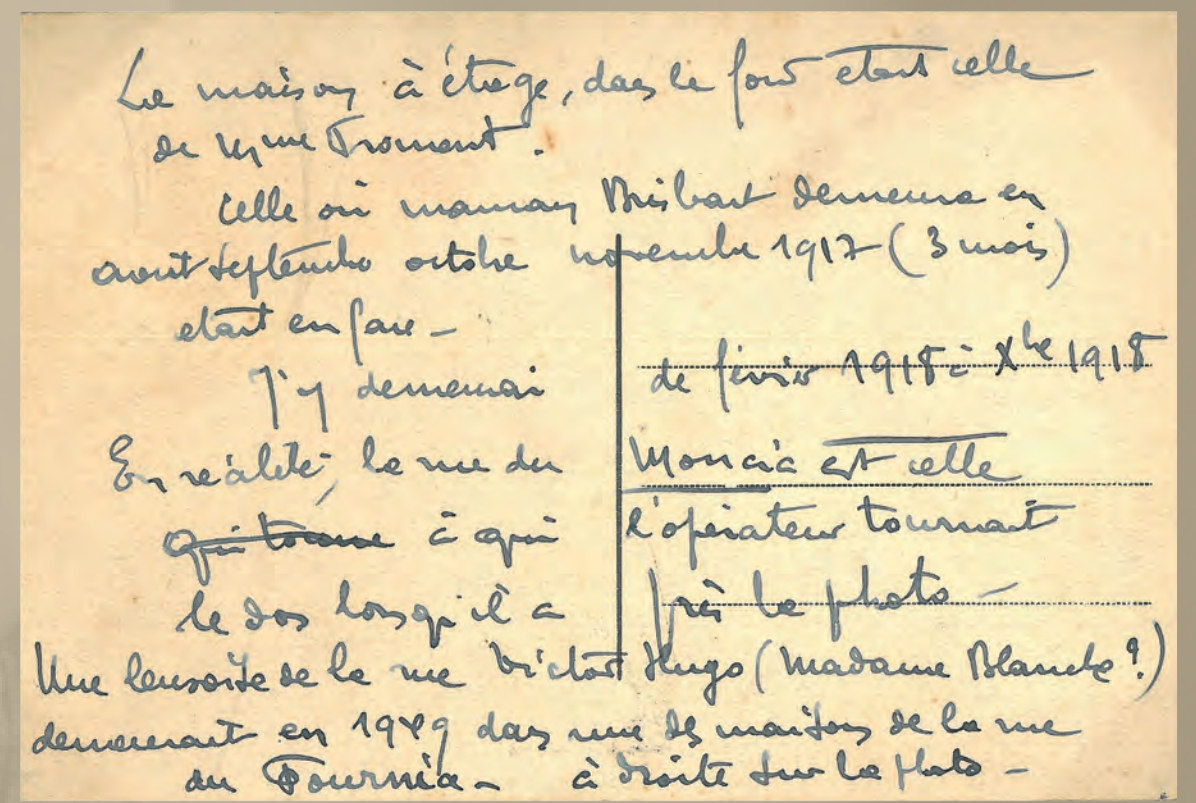 La maison à étage, dans le fond était celle
de Mme Froment.
Celle où maman Brisbart demeura en
aout septembre octobre novembre 1917 (3 mois)
etait en face -
J'y demeurai de février 1918 à Xbre 1918
En réalité, la rue du Moncia est celle
qui tourne à qui l'opérateur tournait
le dos lorsqu'il a pris la photo -
Une lensoise de la rue Victor Hugo (Madame Blanche ?)
demeurait en 1949 dans une des maisons de la rue
du Fournia - à droite sur la photo -